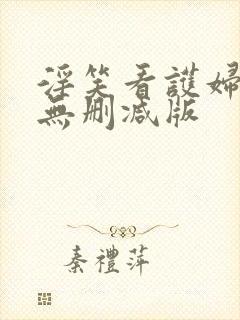 淫笑看護婦
無刪減版
秦禮萍